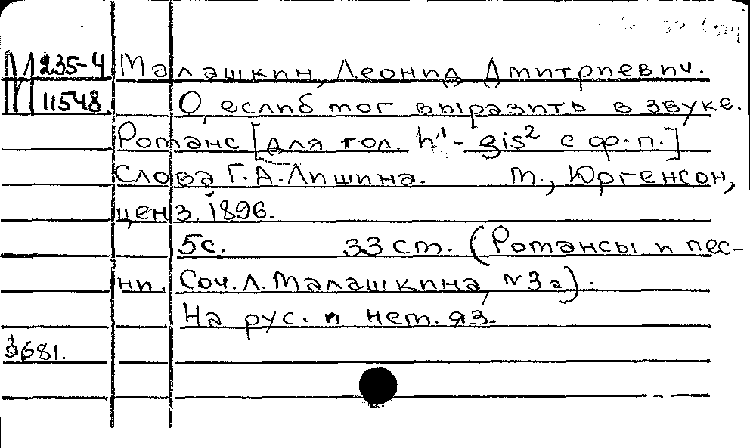 М 235-4 Малашкин, Леонид Дмитриевич.
11548. О, если б мог выразить в звуке.
Романс [для гол. h¹ - gis² с ф.-п.]
Слова Г.А. Лишина. М., Юргенсон,
ценз. 1896.
5с. 33 см. (Романсы и пес-
ни. Соч. Л. Малашкина, №3а).
На рус. и нем. яз.
3681.